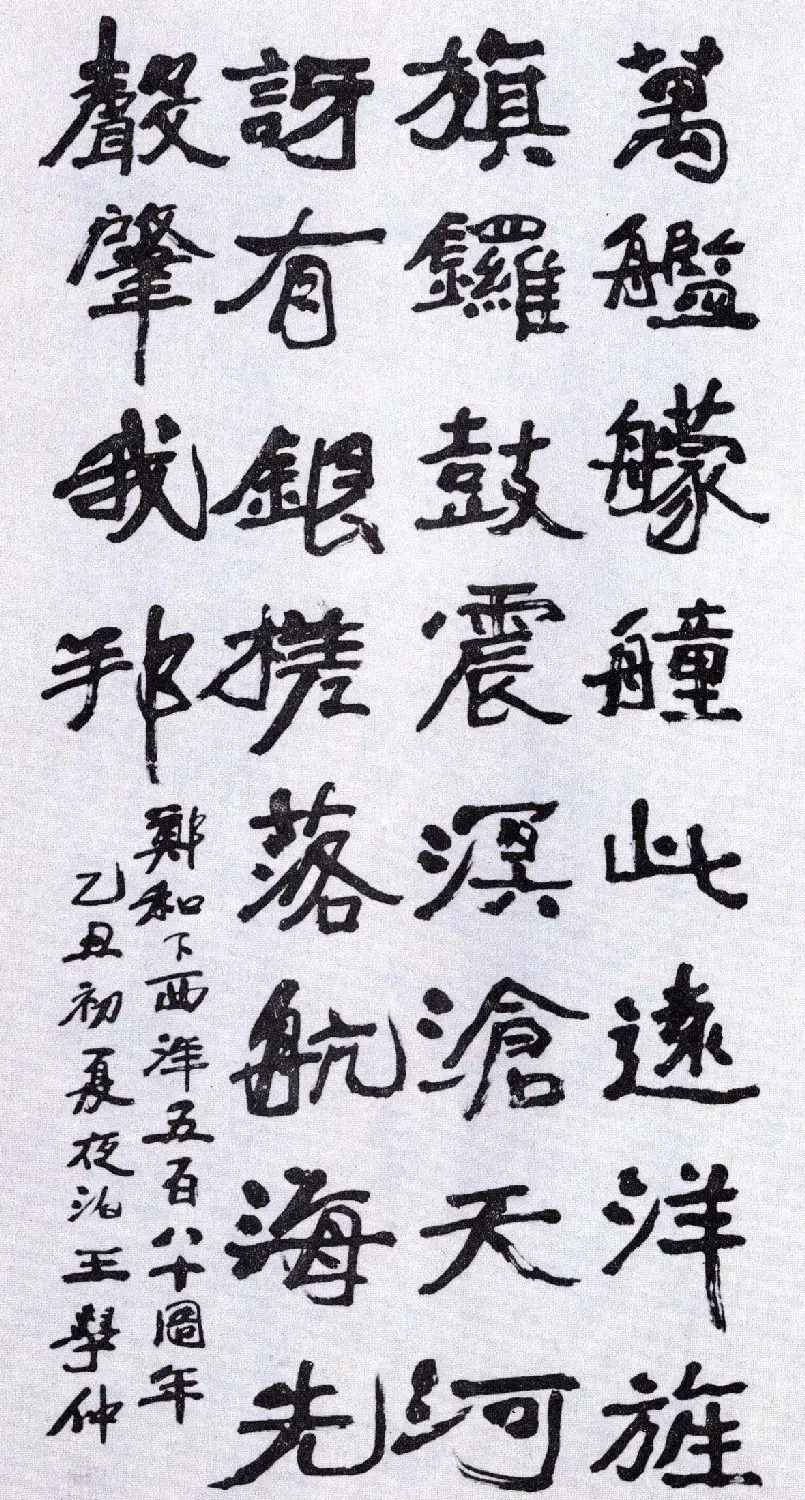 萬艦艨艟此遠洋旌
旗鑼鼓震溟滄天河
訝有銀槎落航海先
聲肇我邦
鄭和下西洋五百八十周年
乙丑初夏夜泊王學仲